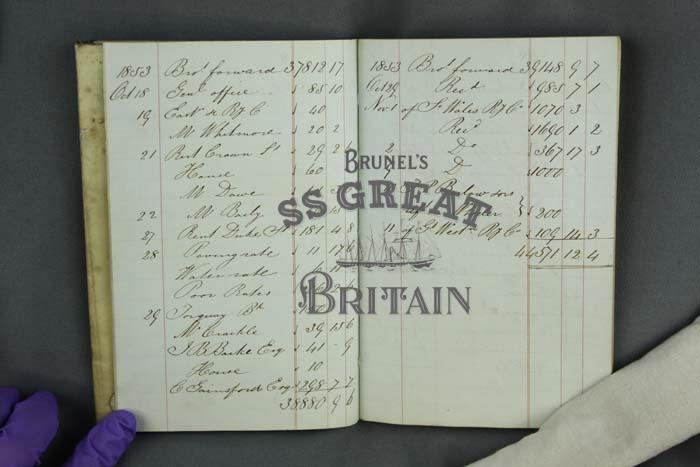 1853 Bro.t forward 37812 17
Oct 18 Gen.l office 85 10
19 East R.y C 40
Mr Whitmore 20 2
21 Rent Crown St 29
House 60
Mr Dawe
22 Mr Baily
27 Rent Duke St 181 4 8
28 Paving rate 11 17 6
Water rate
Poor Rates
29 Torquay
Mr Crackle 39 15 6
41 - 9
House 10
C Gainsford Esq 298 7 7
38880 9 6
1853 Bro.t forward 39148 9 7
Oct 29 Rec.d 985 7 1
Nov 1 of S.o Wales Ry C.o 1070 3
Rec.d 1690 1 2
2 D.o 367 17 3
D 1000
200
11 of G.t West.n Ry C.o 109 14 3
44571 12 4
BRUNEL'S
SS GREAT
BRITAIN